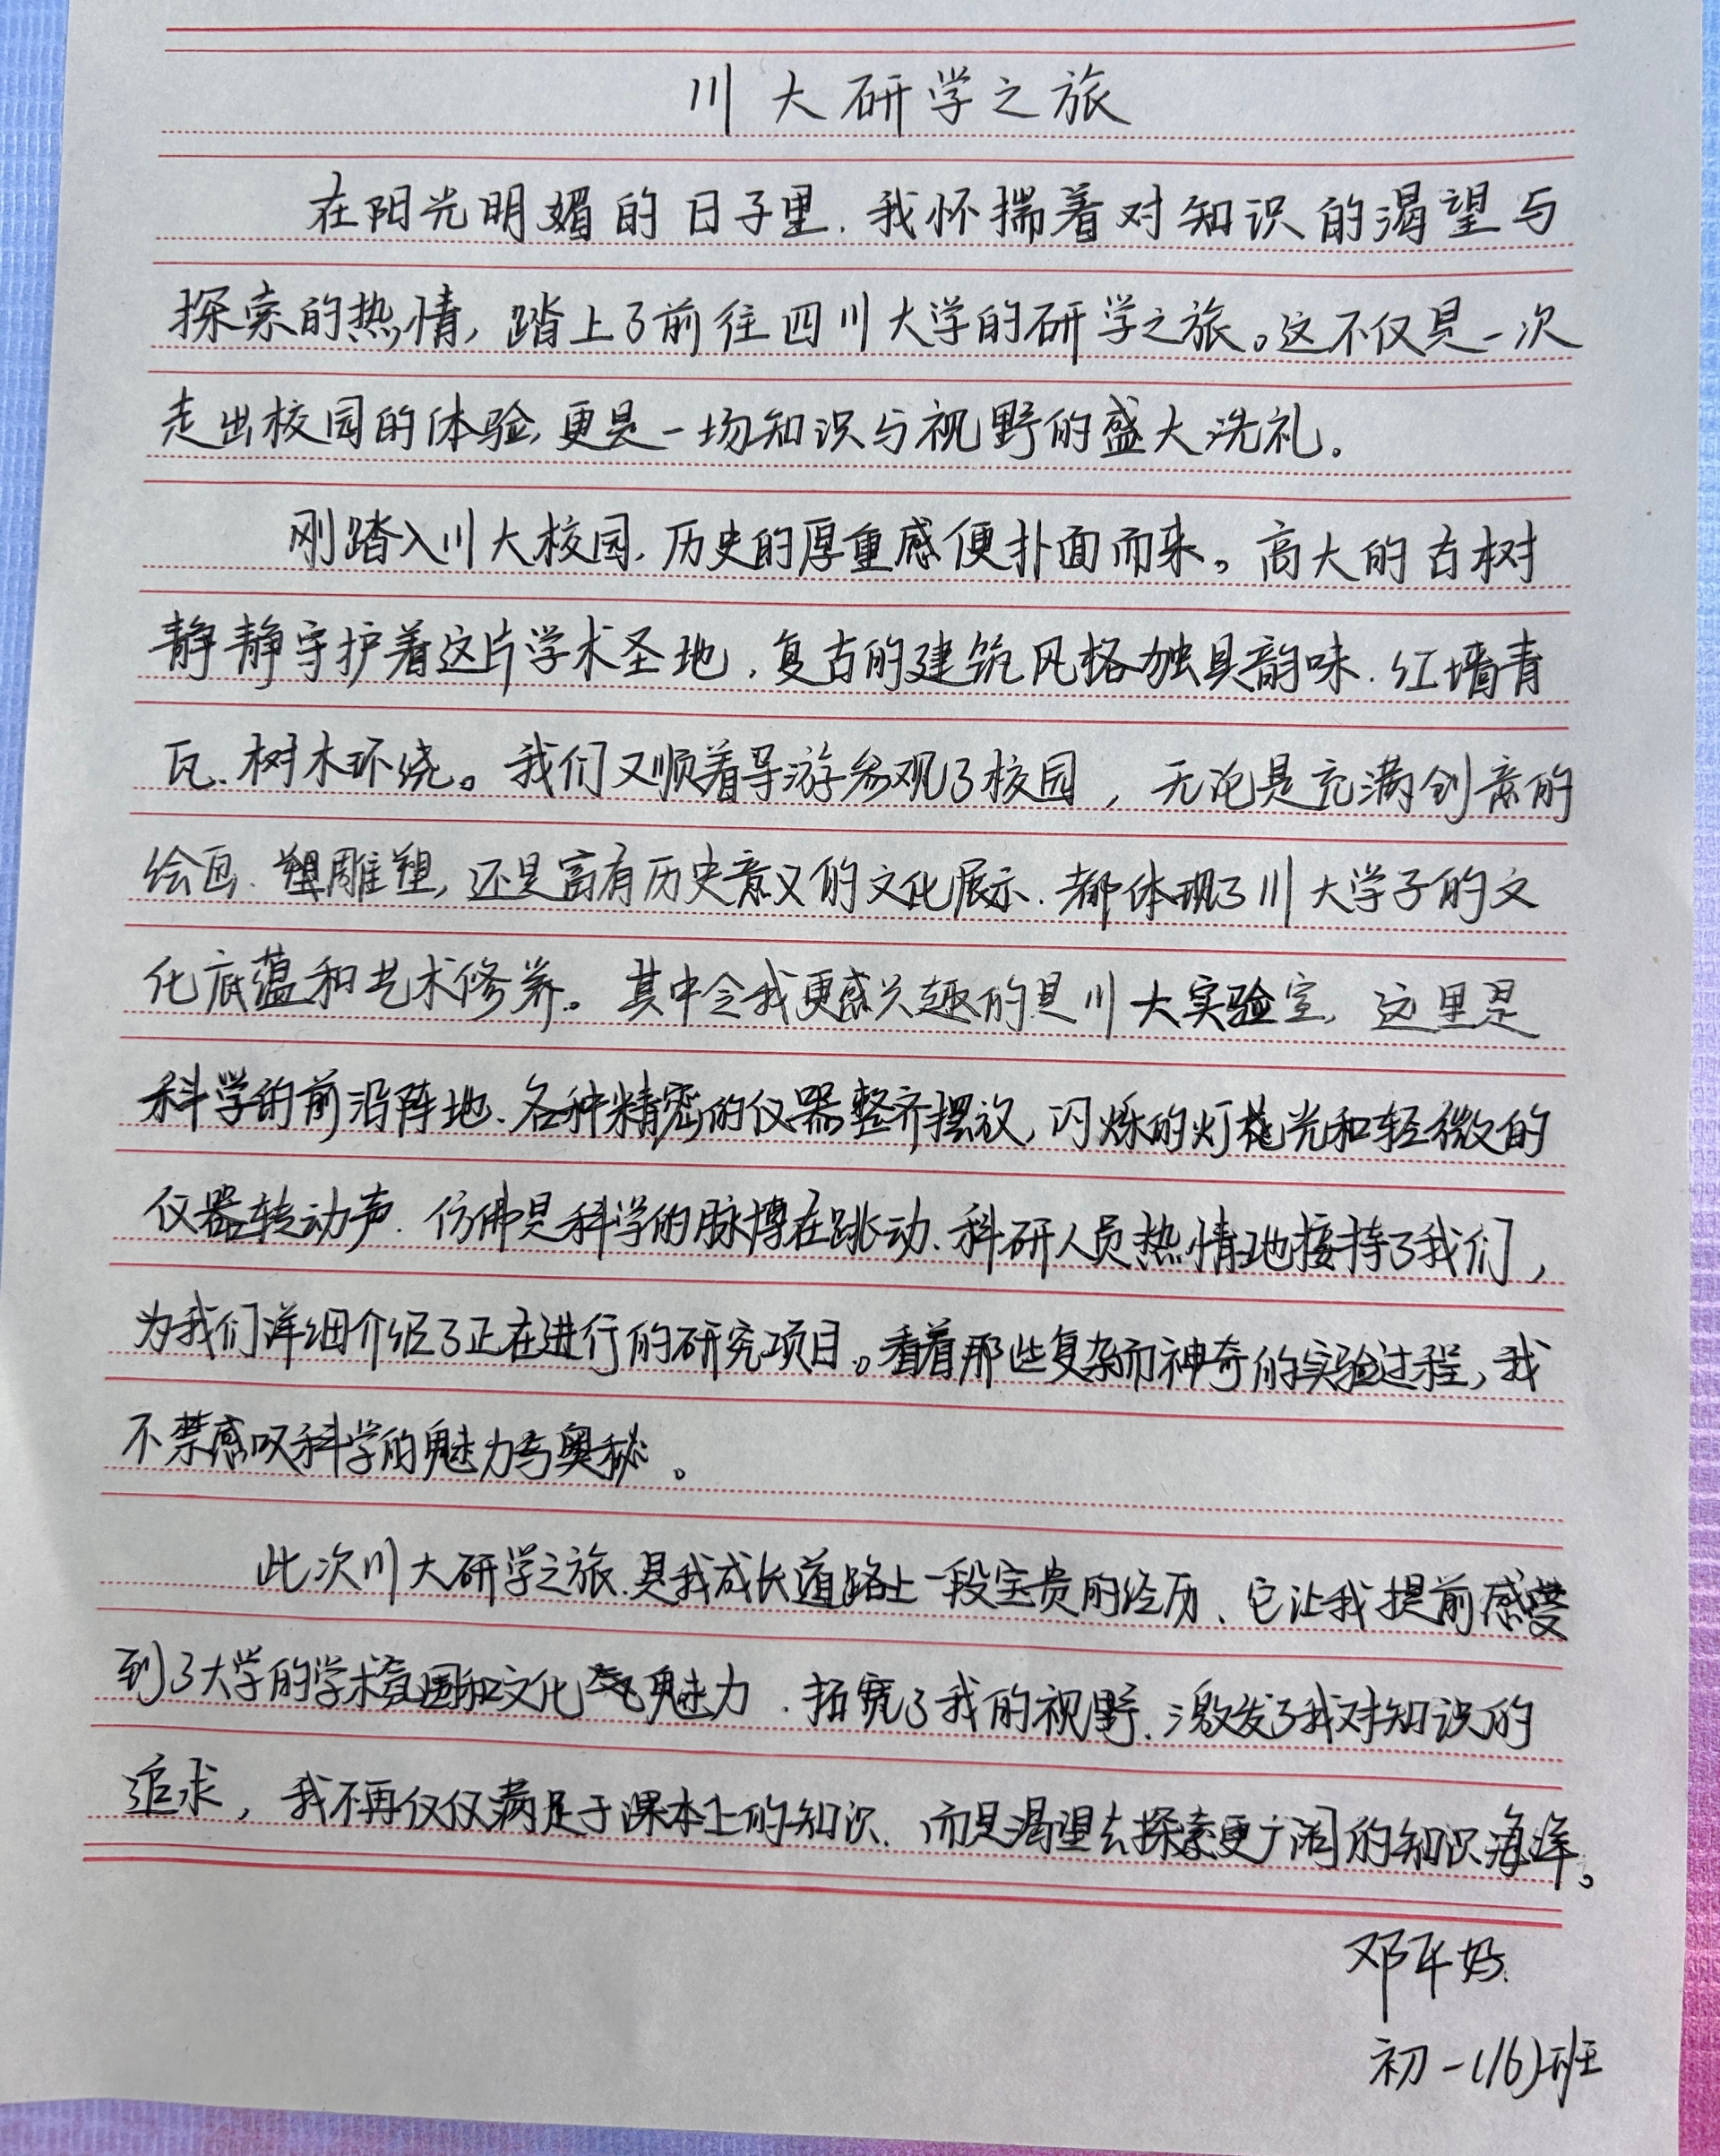 川大研学之旅
在阳光明媚的日子里，我怀揣着对知识的渴望与
探索的热情，踏上了前往四川大学的研学之旅。这不仅是一次
走出校园的体验，更是一场知识与视野的盛大洗礼。
刚踏入川大校园，历史的厚重感便扑面而来。高大的古树
静静守护着这片学术圣地，复古的建筑风格独具韵味，红墙青
瓦、树木环绕。我们又顺着导游参观了校园，无论是充满创意的
绘画、雕塑，还是富有历史意义的文化展示，都体现了川大学子的文
化底蕴和艺术修养。其中令我更感兴趣的是川大实验室，这里是
科学的前沿阵地、各种精密的仪器整齐摆放，闪烁的灯光和轻微的
仪器转动声，仿佛是科学的脉搏在跳动、科研人员热情地接待了我们，
为我们详细介绍了正在进行的研究项目。看着那些复杂而神奇的实验过程，我
不禁感叹科学的魅力与奥秘。
此次川大研学之旅，是我成长道路上一段宝贵的经历、它让我提前感受
到了大学的学术氛围和文化魅力，拓宽了我的视野、激发了我对知识的
追求，我不再仅仅满足于课本上的知识，而是渴望去探索更广阔的知识海洋。
邓
初一(16)班